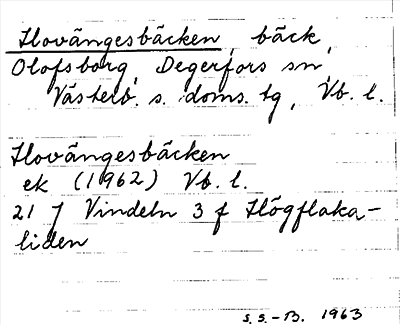 Hovängesbäcken, bäck,
Olofsborg, Degerfors sn,
Västerb. s. doms. tg, Vb. l.
Hovängesbäcken
ek (1962) Vb. l.
21 J Vindeln 3 f Högflaka-
liden
S.S.-B. 1963